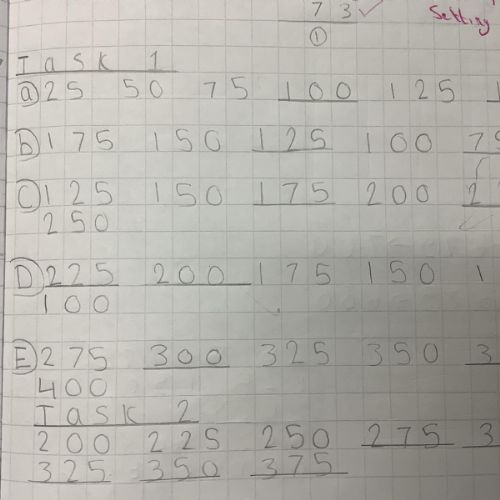 73 ✓
Setting
①
Task 1
a) 25 50 75 100 125
b) 175 150 125 100
c) 125 150 175 200
250
D) 225 200 175 150
100
E) 275 300 325 350
400
Task 2
200 225 250 275
325 350 375